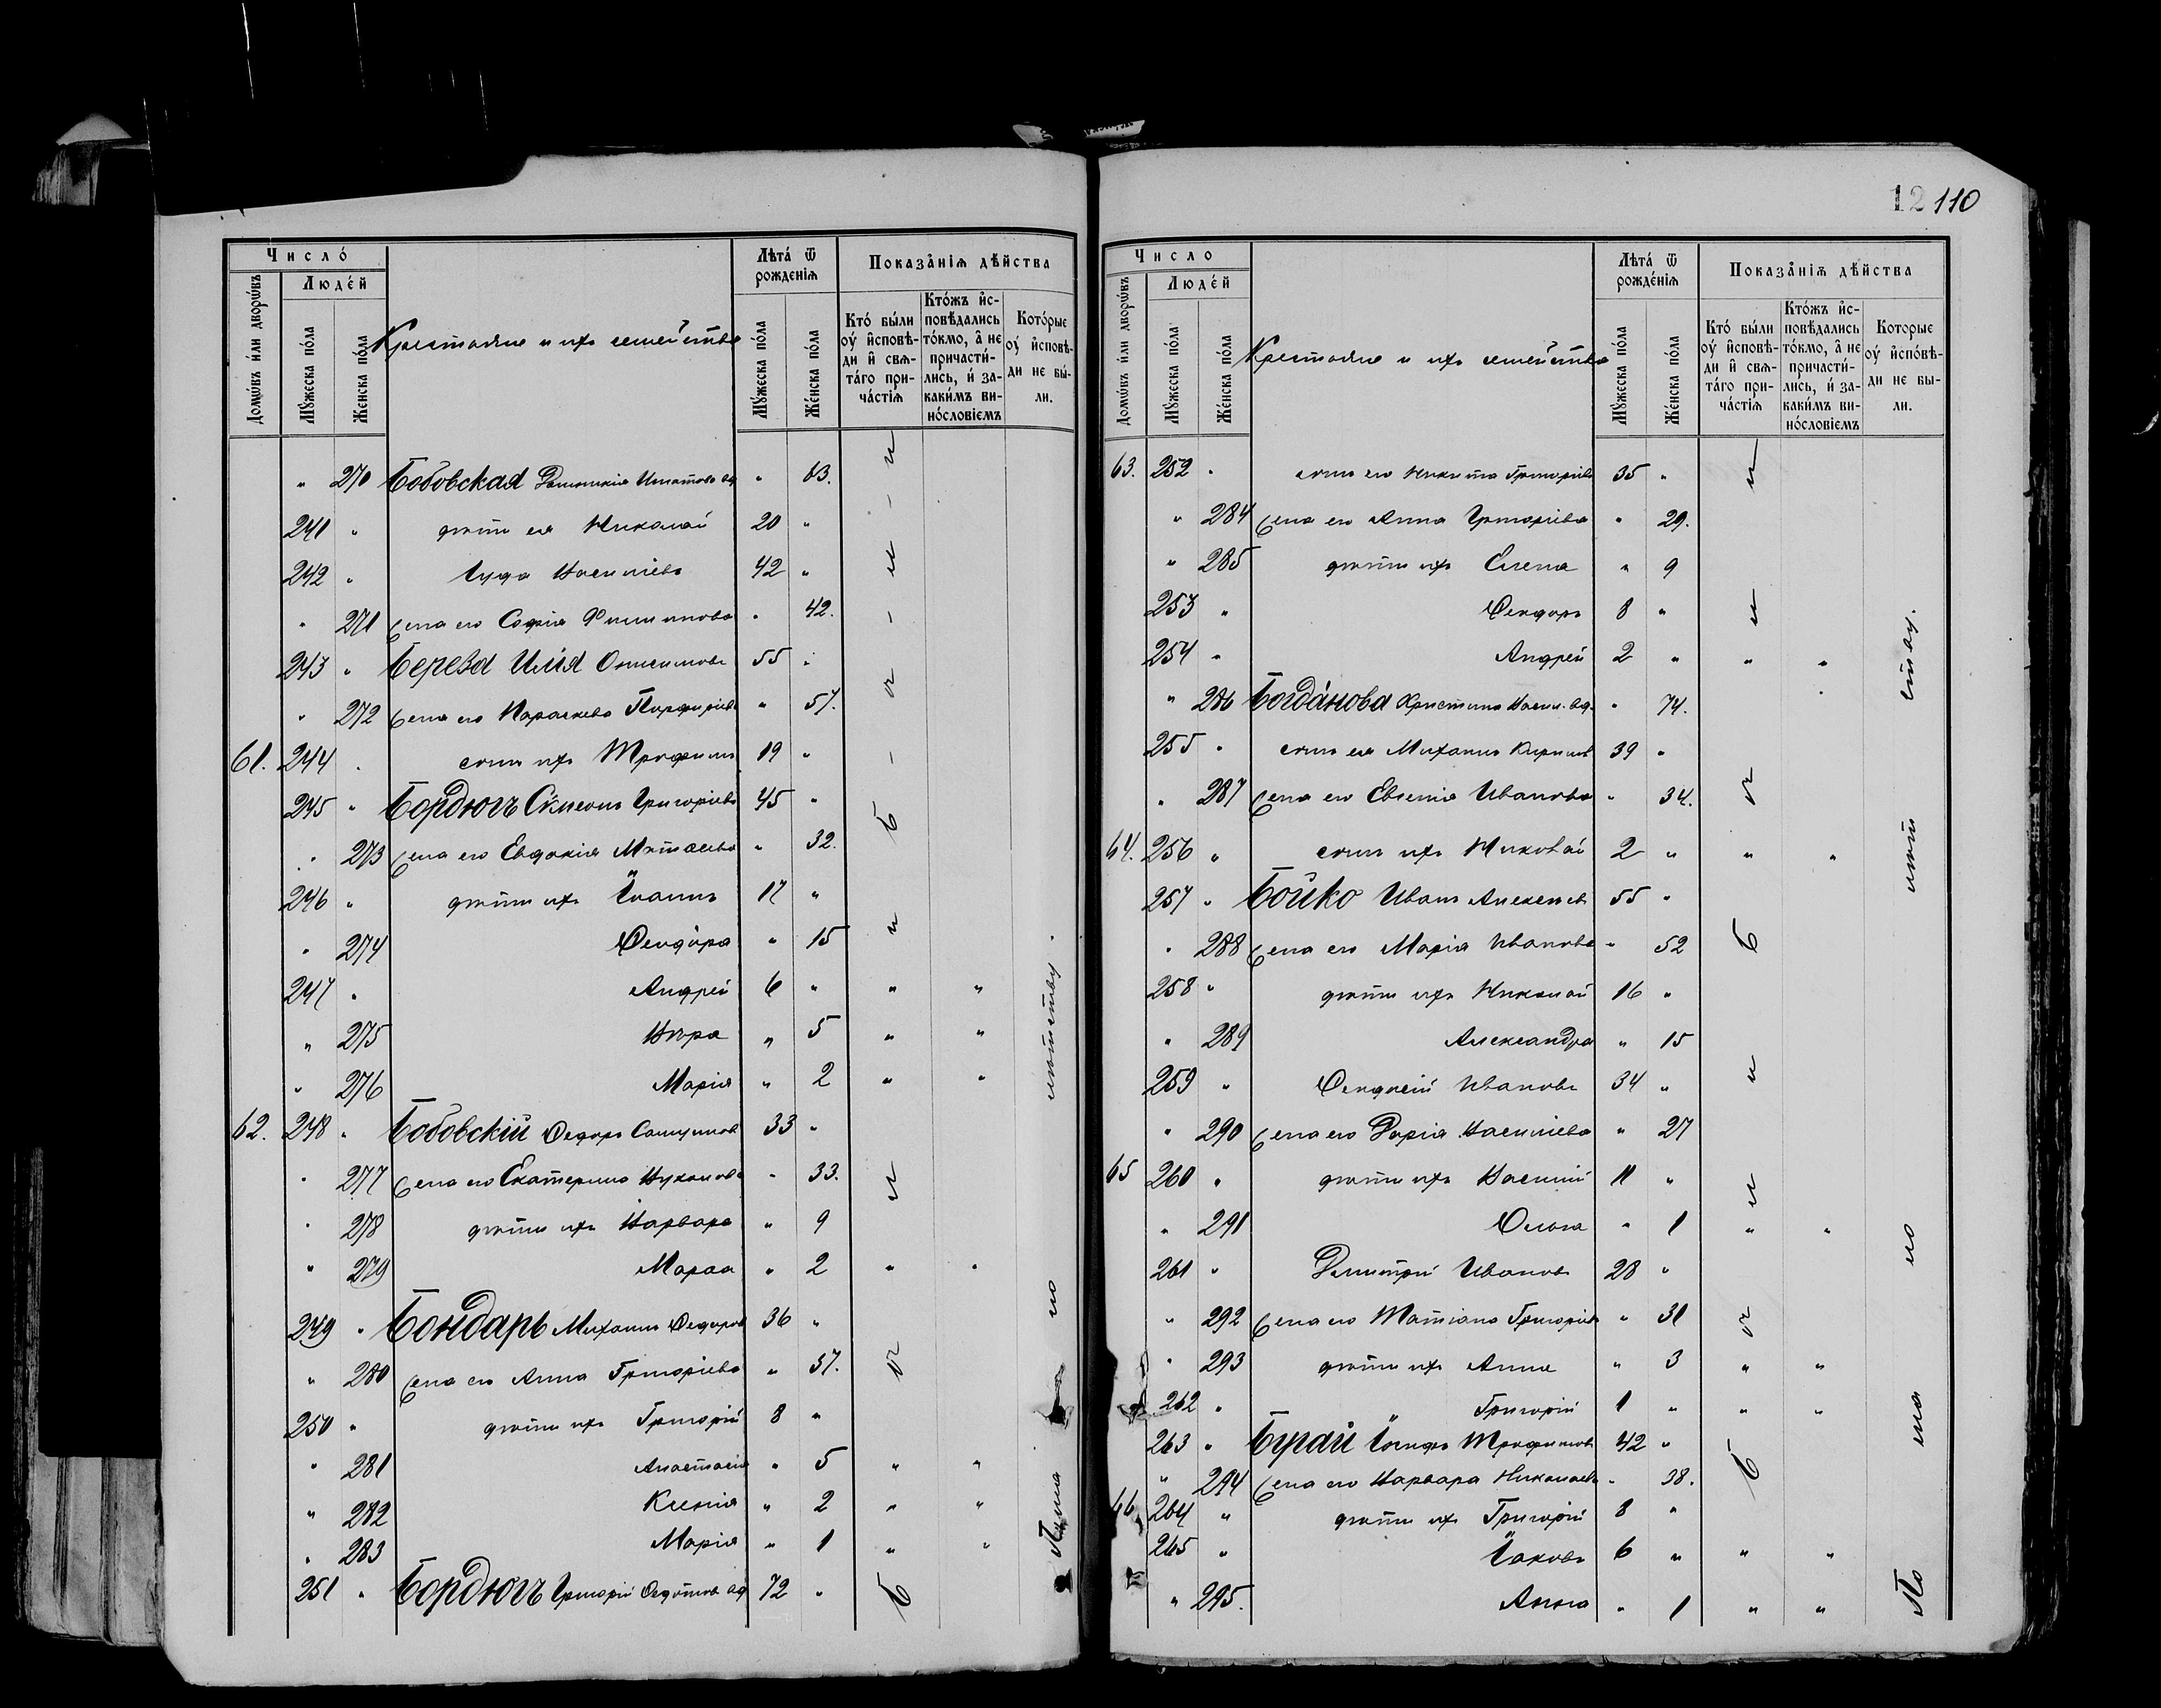 12 110
Число́
Людє́й
Домѡ́въ и́ли дворѡ́въ
Мꙋ́жєска по́ла
Жє́нска по́ла
Крестьяне и ихъ семейства
Лѣта́ ѿ рождєнїѧ
Мꙋ́жєска по́ла
Жє́нска по́ла
Показа̑нїѧ дѣ́йства
Кто́ бы́ли оу҆ и҆сповѣ-
ди и҆ свѧ-
та́го при-
ча́стїѧ
Кто́жъ и҆с-
повѣ́дались
то́кмо, а҆ нє
причасти́-
лись, и҆ за-
каки́мъ ви-
но́словїємъ
Кото́рыє
оу҆ и҆сповѣ́-
ди нє бы́-
ли.
" 270 Бобовская Домникія Игнатова вд " 63.
241 " дѣти ея Николай 20 "
242 " Іуда Васильевъ 42 "
" 271 жена его Софія Филиппова " 42.
243 " Береза Илія Онисимовъ 55 "
" 272 жена его Параскева Порфиріева " 57.
61. 244 " сынъ ихъ Трофимъ 19 "
245 " Бордюгъ Симеонъ Григоріевъ 45 "
" 273 жена его Евдокія Матѳеева " 32.
246 " дѣти ихъ Іоаннъ 17 "
" 274 Ѳеодора " 15
247 " Андрей 6 " " "
" 275 Вѣра " 5 " "
" 276 Марія " 2 " "
62. 248 " Бобовскій Ѳедоръ 33 "
" 277 жена его Екатерина " 33.
" 278 дѣти ихъ Варвара " 9
" 279 " 2 " "
249 " Бондарь Михаилъ Ѳедоровъ 36 "
" 280 жена его Анна Григоріева " 37.
250 " дѣти ихъ Григорій 8 "
" 281 Анастасія " 5 " "
" 282 Ксенія " 2 " "
" 283 Марія " 1 " "
251 " Бордюгъ Григорій Ѳедотовъ вд 72 "
были
По малолѣтству.
Число
Людє́й
Домѡ́въ и́ли дворѡ́въ
Мꙋ́жєска по́ла
Жє́нска по́ла
Крестьяне и ихъ семейства
Лѣта́ ѿ рождє́нїѧ
Мꙋ́жєска по́ла
Жє́нска по́ла
Показа̑нїѧ дѣ́йства
Кто́ бы́ли
оу҆ и҆сповѣ́-
ди и҆ свѧ-
та́го при-
ча́стїѧ
Кто́жъ и҆с-
повѣ́дались
то́кмо, а҆ нє
причасти́-
лись, и҆ за-
каки́мъ ви-
но́словїємъ
Которыє
оу҆ и҆спо́вѣ-
ди нє бы-
ли.
63. 252 " сынъ его Никита Григоріевъ 35 "
" 284 жена его Анна Григоріева " 29.
" 285 дѣти ихъ Елена " 9
253 " Ѳеодоръ 8 "
254 " Андрей 2 " " "
" 286 Богданова Христина Васил. вд. " 74.
255 " сынъ ея Михаилъ Кириловъ 39 "
" 287 жена его Евгенія Иванова " 34.
64. 256 " сынъ ихъ Николай 2 " " "
257 " Бойко Иванъ Алексѣевъ 55 "
" 288 жена его Марія Иванова " 52
258 " дѣти ихъ Николай 16 "
" 289 Александра " 15
259 " Ѳеодосій Ивановъ 34 "
" 290 жена его Дарія Васильева " 27
65 260 " дѣти ихъ Василій 11 "
" 291 Ольга " 1 " "
261 " Димитрій Ивановъ 28 "
" 292 жена его Татіана Григоріева " 31
" 293 дѣти ихъ Анна " 3 " "
262 " Григорій 1 " " "
263 " Бурай Іосифъ Трофимовъ 42 "
" 294 жена его Варвара Николаева " 38.
66. 264 " дѣти ихъ Григорій 8 "
265 " Іаковъ 6 " " "
" 295. Анна " 1 " "
были
По малолѣтству.